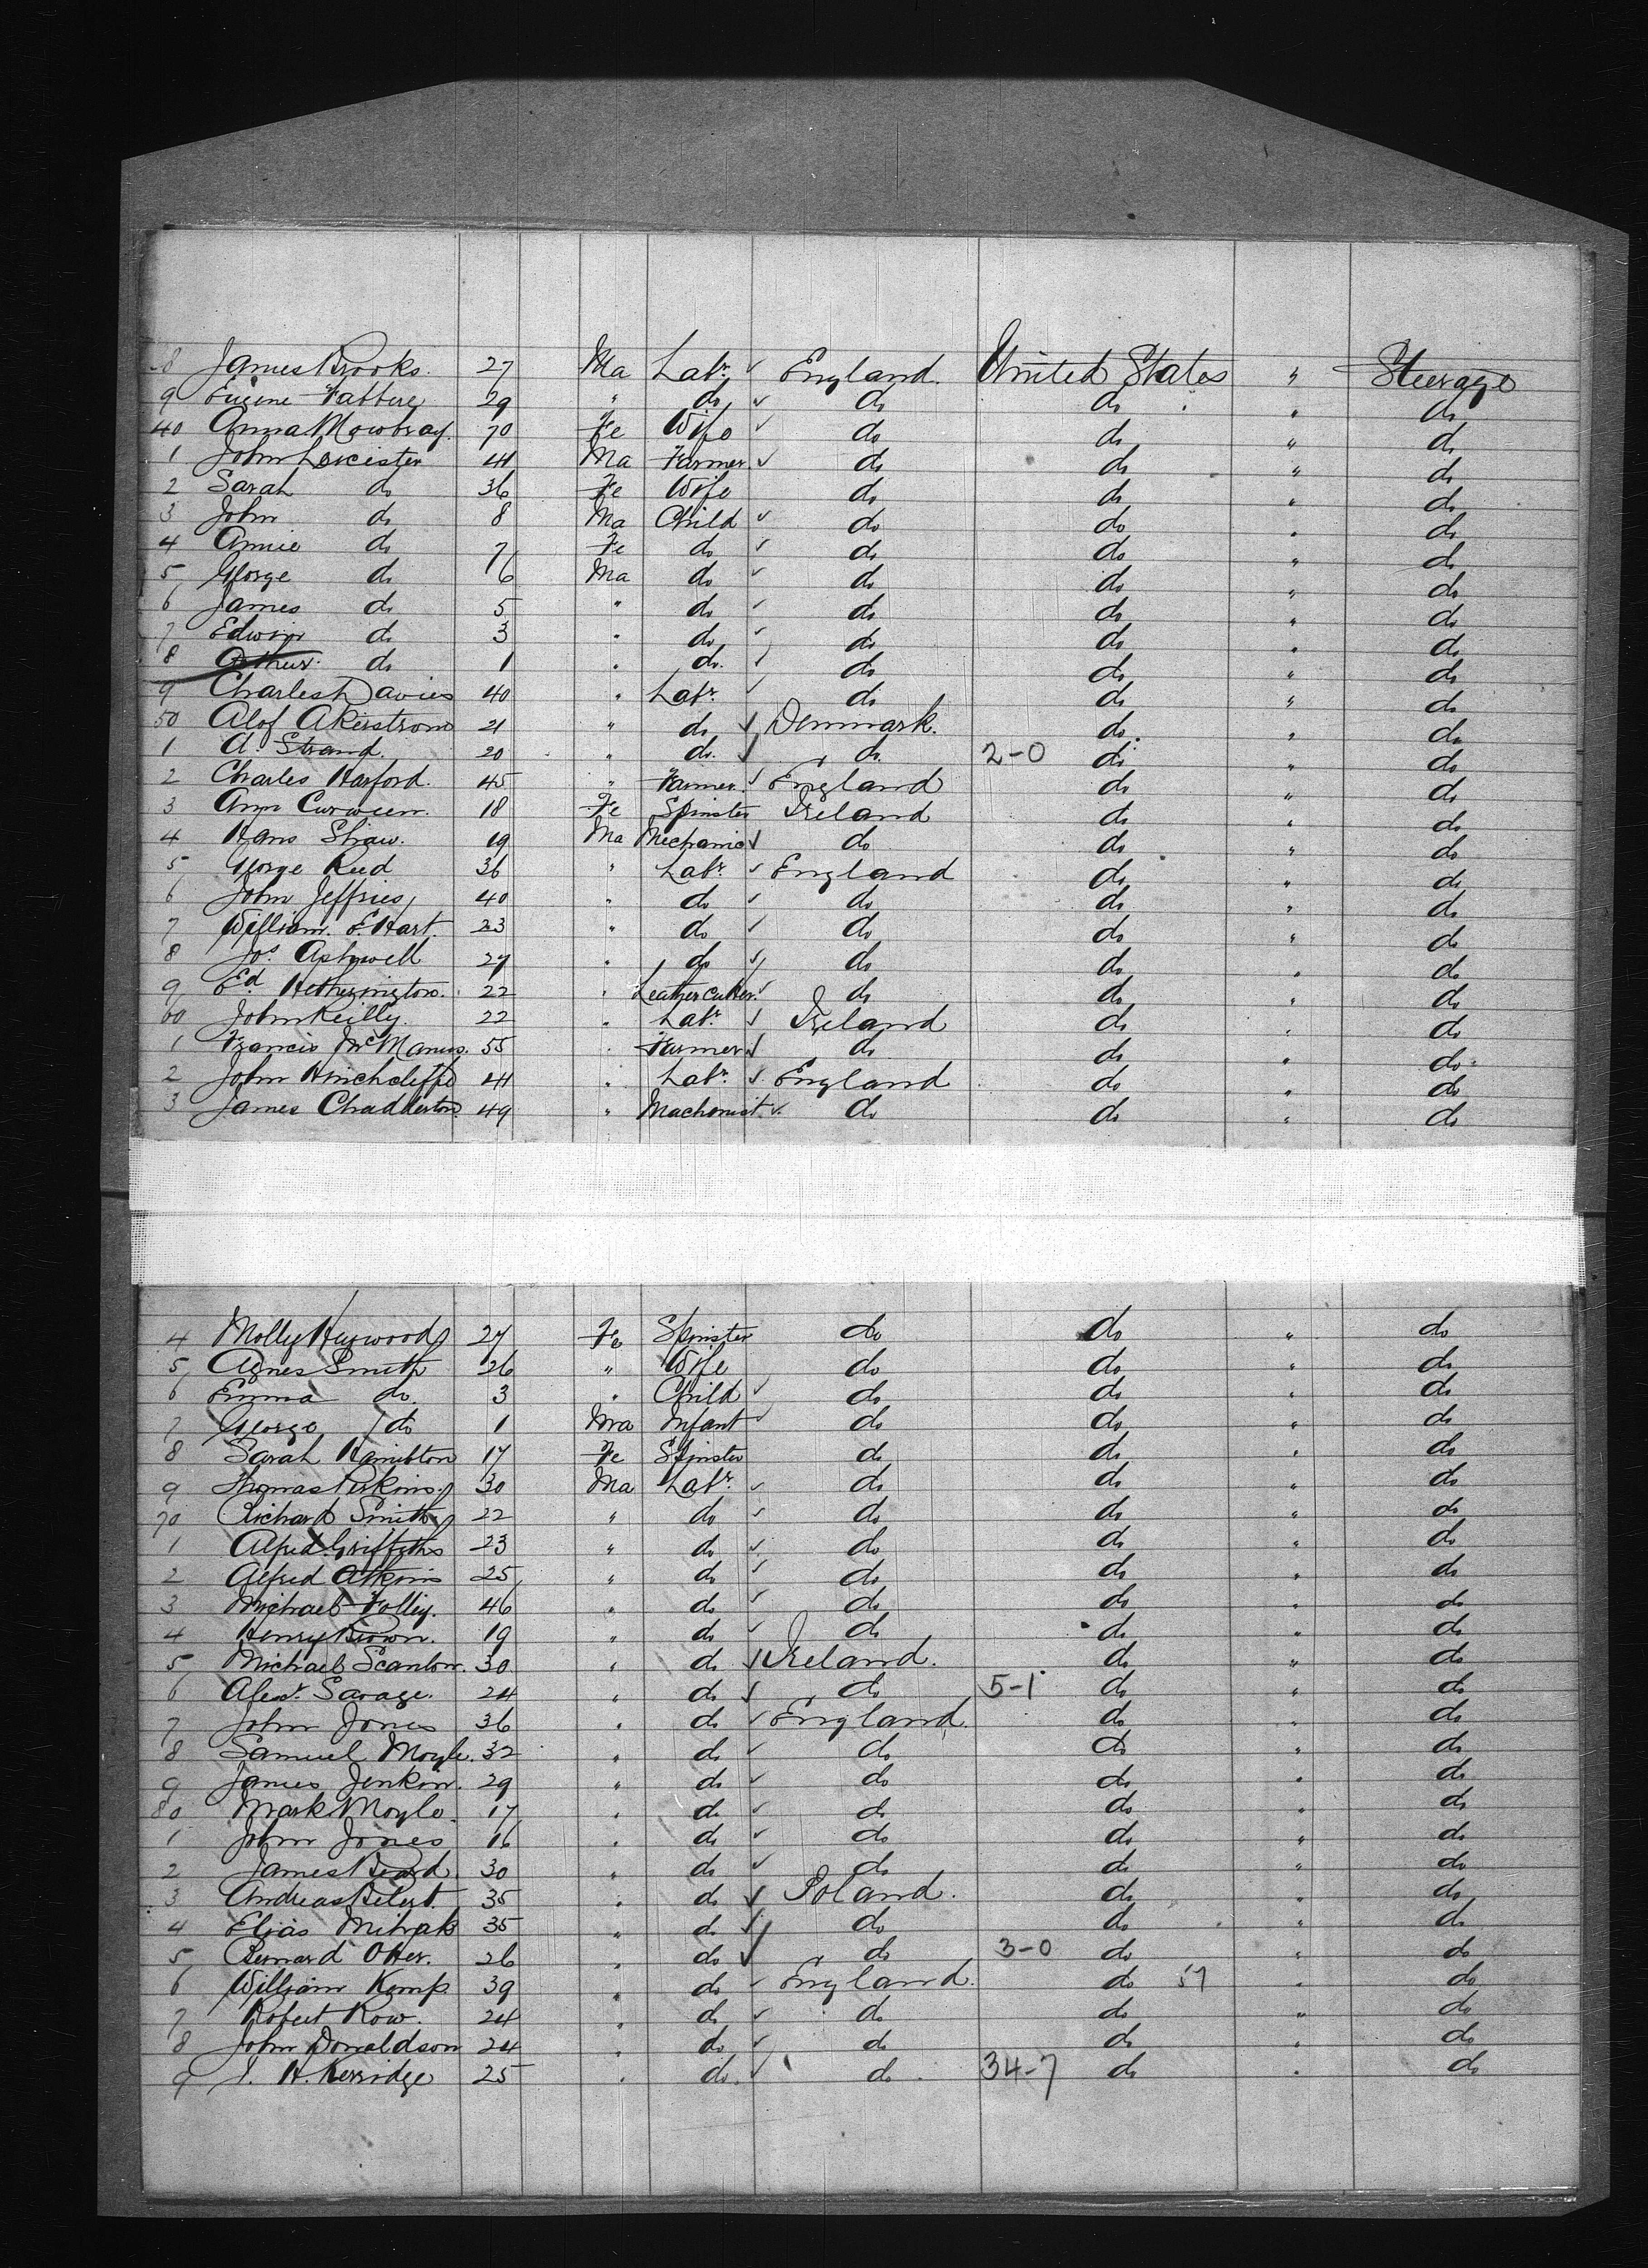 8 James Brooks. 27 Ma Labr. ✓ England. United States " Steerage
9 29 " do ✓ do do " do
40 Anna Mowbray. 70 Fe Wife ✓ do do " do
1 John Leicester 41 Ma Farmer ✓ do do " do
2 Sarah do 36 Fe Wife do do " do
3 John do 8 Ma Child ✓ do do " do
4 Annie do 7 Fe do ✓ do do " do
5 George do 6 Ma do ✓ do do " do
6 James do 5 " do ✓ do do " do
7 Edwin do 3 " do ✓ do do " do
8 Arthur. do 1 " do. ✓ do do " do
9 Charles Davies 40 " Labr. ✓ do do " do
50 Alof Akerstrom 21 " do ✓ Denmark. do. " do
1 A. Strand. 20 " do. ✓ do. 2-0 do " do
2 Charles Harford. 45 " Farmer. ✓ England do " do
3 Ann Curween. 18 Fe Spinster Ireland do " do
4 Hans Shaw. 19 Ma Mechanic ✓ do do " do
5 George Reed 36 " Labr. ✓ England do " do
6 John Jeffries 40 " do ✓ do do " do
7 William E. Hart. 23 " do ✓ do do " do
8 Jos. Ashwell 27 " do ✓ do do " do
9 Ed. Hetherington. 22 " Leather cutter. ✓ do do " do
60 John Reilly. 22 " Labr. ✓ Ireland do " do
1 Francis McManus. 55 " Farmer ✓ do do " do
2 John Hinchcliffe 41 " Labr. ✓ England do " do
3 James Chadderton. 49 " Machonist. ✓ do do " do
4 Molly Heywood 27 Fe Spinster do do " do
5 Agnes Smith 26 " Wife do do " do
6 Emma do. 3 " Child ✓ do do " do
7 George do 1 Ma Infant ✓ do do " do
8 Sarah Hamilton 17 Fe Spinster do do " do
9 Thomas Perkins. 30 Ma Labr. ✓ do do " do
70 Richard Smith 22 " do ✓ do do " do
1 Alfred Griffiths 23 " do ✓ do do " do
2 Alfred Atkins 25 " do ✓ do do " do
3 Michael Folley. 46 " do ✓ do do " do
4 Henry Brown. 19 " do ✓ do do " do
5 Michael Scanlon. 30 " do ✓ Ireland. do " do
6 Alexr. Savage. 24 " do ✓ do 5-1 do " do
7 John Jones 36 " do ✓ England. do " do
8 Samuel Moyle. 32 " do ✓ do do " do
9 James Jenkin. 29 " do ✓ do do " do
80 Mark Moyle. 17 " do ✓ do do " do
1 John Jones 16 " do ✓ do do " do
2 James Beard 30 " do ✓ do do " do
3 Andreas 35 " do ✓ Poland. do " do
4 Elias 35 " do ✓ do do " do
5 Bernard Otter. 26 " do ✓ do 3-0 do " do
6 William Kemp. 39 " do ✓ England. do 57 " do
7 Robert Row. 24 " do ✓ do do " do
8 John Donaldson 24 " do ✓ do do " do
9 J. H. Kerridge 25 " do. ✓ do. 34-7 do " do